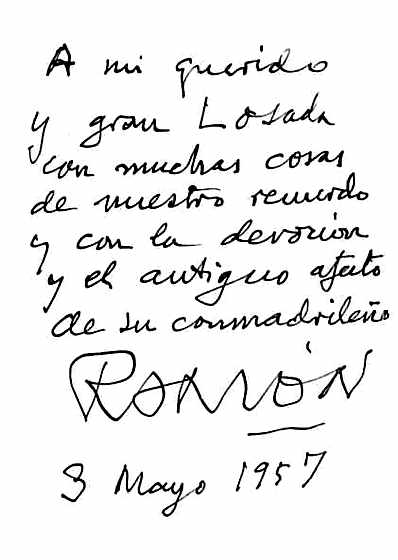 A mi querido
y gran Losada
con muchas cosas
de nuestro recuerdo
y con la devoción
y el antiguo afecto
de su conmadrileño
RAMÓN
3 Mayo 1957